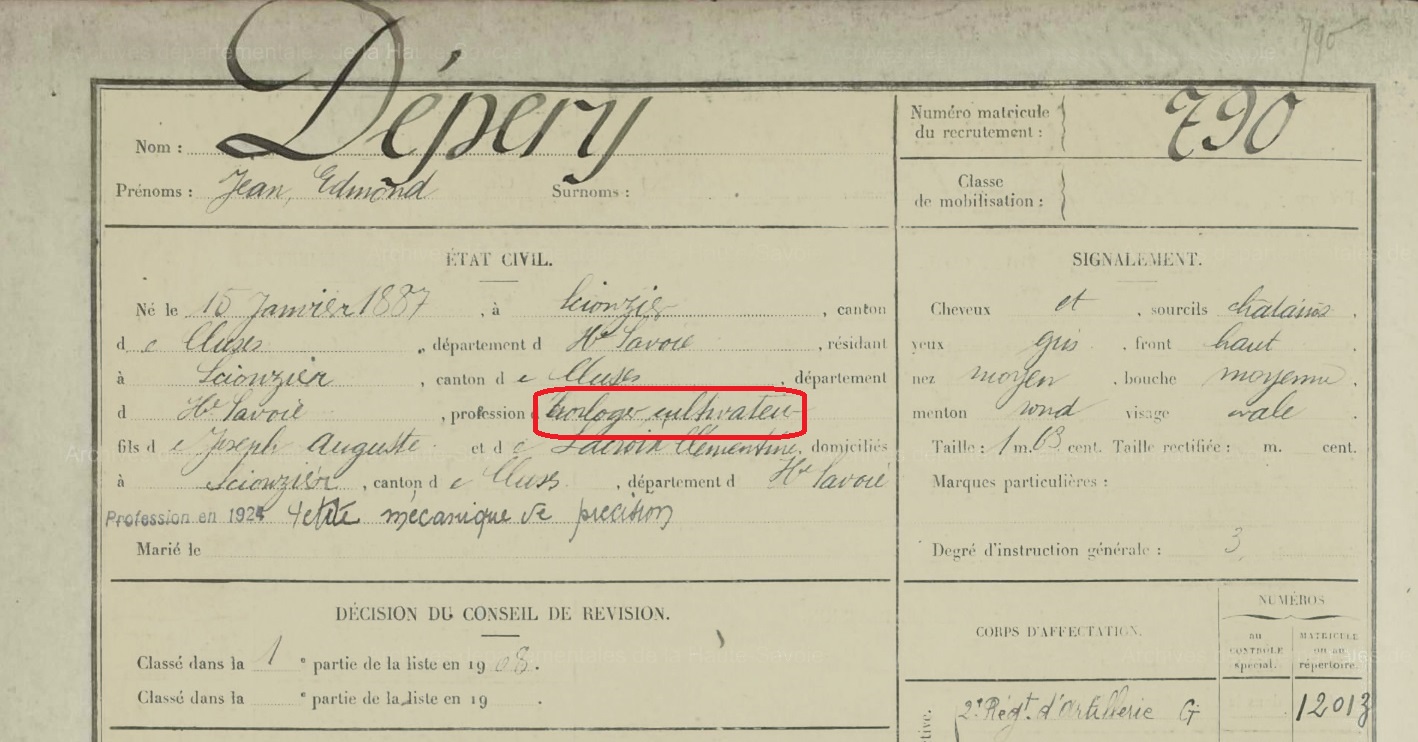 790
Nom : Dépery
Numéro matricule du recrutement : 790
Prénoms : Jean, Edmond Surnoms :
Classe de mobilisation :
ÉTAT CIVIL.
Né le 15 Janvier 1887, à Scionzier, canton
de Cluses, département d Hte Savoie, résidant
à Scionzier, canton de Cluses, département
d Hte Savoie, profession d horloger cultivateur
fils de Joseph Auguste et de Lacroix Clémentine, domiciliés
à Scionzier, canton de Cluses, département d Hte Savoie
Profession en 1924 petite mécanique de précision
Marié le
SIGNALEMENT.
Cheveux et, sourcils chatains.
yeux gris, front haut.
nez moyen, bouche moyenne.
menton rond visage ovale.
Taille : 1 m. 63 cent. Taille rectifiée : m. cent.
Marques particulières :
Degré d'instruction générale : 3
DÉCISION DU CONSEIL DE REVISION.
Classé dans la 1e partie de la liste en 1908.
Classé dans la e partie de la liste en 19 .
CORPS D'AFFECTATION.
NUMÉROS
au CONTROLE spécial.
MATRICULE ou au répertoire.
2e Régt. d'artillerie G 12013
tive.
Archives départementales de la Haute-Savoie